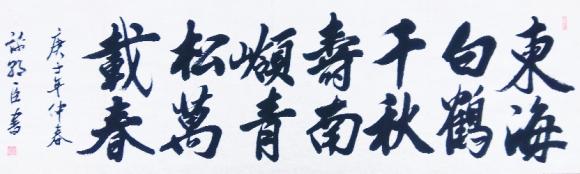 東海
白鶴
千秋
壽南
嶺青
松萬
載春
庚子年仲春
臣書